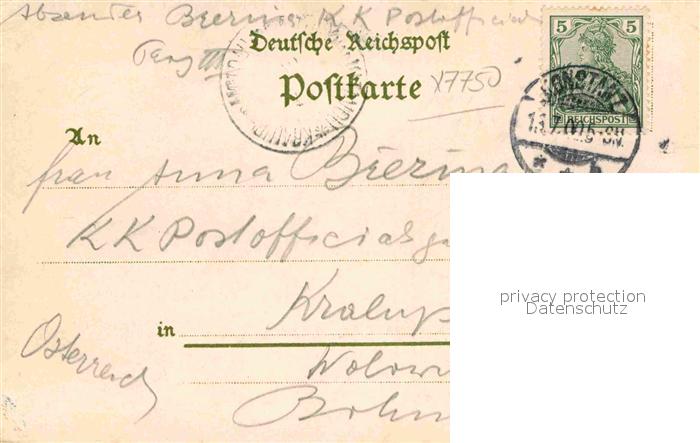 Absender Biering KK Postofficial
Deutsche Reichspost
Postkarte
17750
5 5
REICHSPOST
KONSTANZ
An
frau Anna Biering
KK Postofficialsga
in Kralup
Österreich
Böhm
privacy protection
Datenschutz